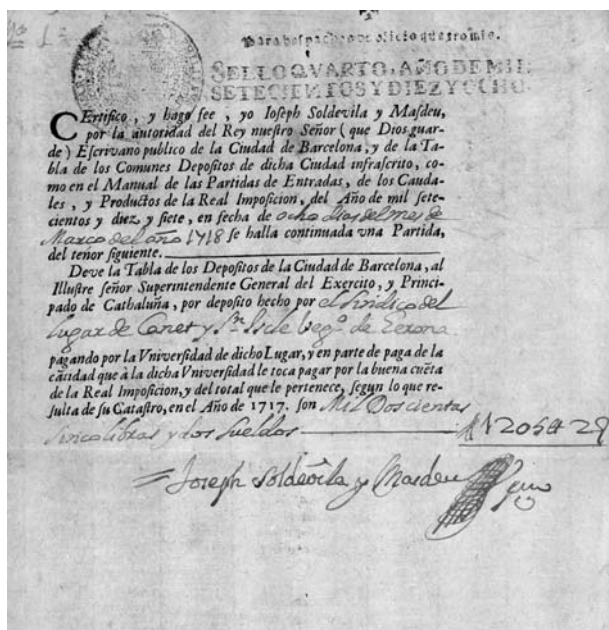 Nº 1
Para despachos de oficio quatro mrs.
SELLO QVARTO, AÑO DE MIL
SETECIENTOS Y DIEZ Y OCHO.
CErtifico, y hago fee, yo Ioseph Soldevila y Masdeu,
por la autoridad del Rey nuestro Señor (que Dios guar-
de) Escrivano publico de la Ciudad de Barcelona, y de la Ta-
bla de los Comunes Depositos de dicha Ciudad infrascrito, co-
mo en el Manual de las Partidas de Entradas, de los Cauda-
les, y Productos de la Real Imposicion, del Año de mil sete-
cientos y diez y siete, en fecha de ocho dias del mes de
Marco del año 1718 se halla continuada vna Partida,
del tenor siguiente.
Deve la Tabla de los Depositos de la Ciudad de Barcelona, al
Illustre señor Superintendente General del Exercito, y Princi-
pado de Cathaluña, por deposito hecho por el Sindico del
lugar de Canet y Sn. Iscle Vegª. de Gerona
pagando por la Vniversidad de dicho Lugar, y en parte de paga de la
cãtidad que à la dicha Vniversidad le toca pagar por la buena cuẽta
de la Real Imposicion, y del total que le pertenece, segun lo que re-
sulta de su Catastro, en el Año de 1717. son Mil Doscientas
sinco libras y dos sueldos 1205 2
Joseph Soldevila y Masdeu